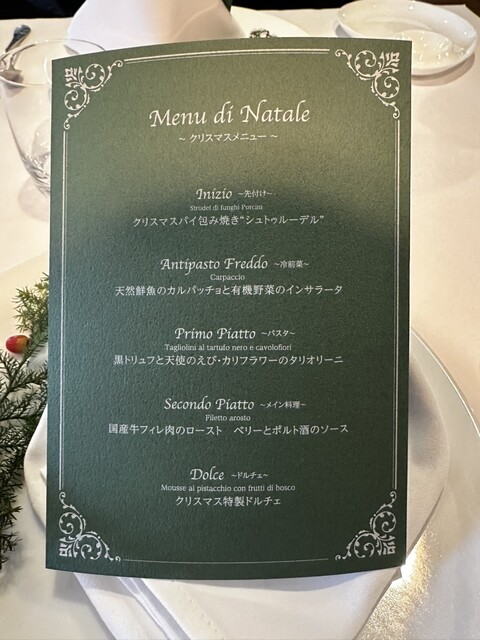 Menu di Natale
~ クリスマスメニュー ~
Inizio ~先付け~
Strudel di funghi Porcini
クリスマスパイ包み焼き“シュトゥルーデル”
Antipasto Freddo ~冷前菜~
Carpaccio
天然鮮魚のカルパッチョと有機野菜のインサラータ
Primo Piatto ~パスタ~
Tagliolini al tartufo nero e cavolofiori
黒トリュフと天使のえび・カリフラワーのタリオリーニ
Secondo Piatto ~メイン料理~
Filetto arosto
国産牛フィレ肉のロースト　ベリーとポルト酒のソース
Dolce ~ドルチェ~
Mousse al pistacchio con frutti di bosco
クリスマス特製ドルチェ